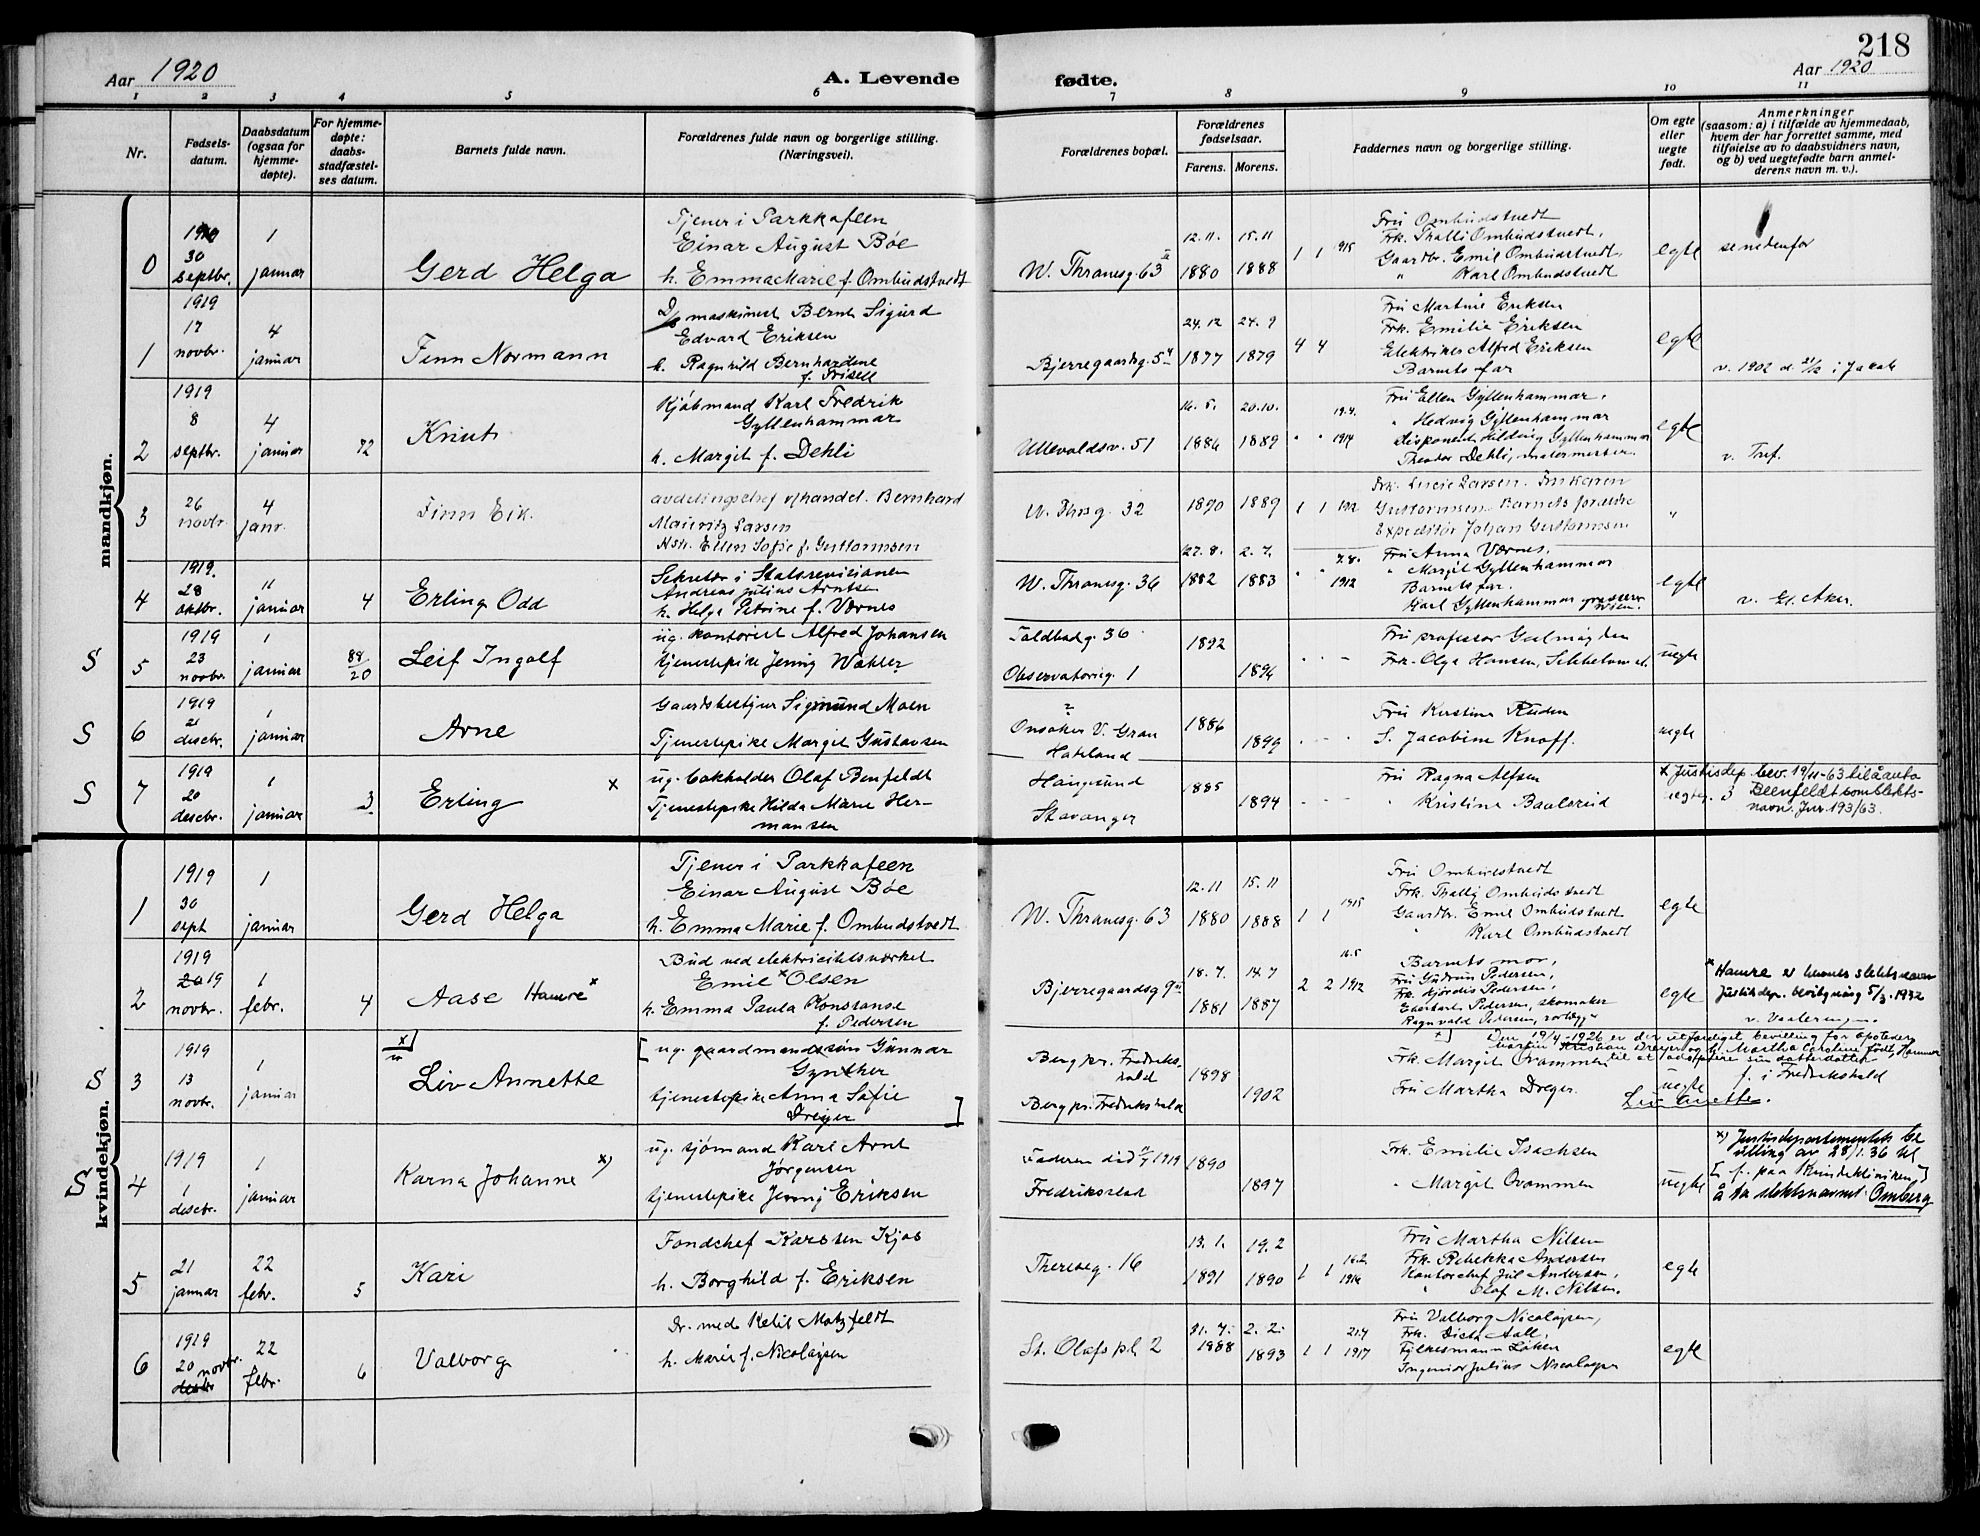 218
Aar 1920
A. Levende
fødte.
Aar 1920
1 2 3 4 5 6 7 8 9 10 11
Nr.
Fødsels-
datum.
Daabsdatum
(ogsaa for
hjemme-
døpte).
For hjemme-
døpte:
daabs-
stadfæstel-
ses datum.
Barnets fulde navn.
Forældrenes fulde navn og borgerlige stilling.
(Næringsvei).
Forældrenes bopæl.
Forældrenes
fødselsaar.
Farens. Morens.
Faddernes navn og borgerlige stilling.
Om egte
eller
uegte
født.
Anmerkninger
(saasom: a) i tilfælde av hjemmedaab,
hvem der har forrettet samme, med
tilføielse av to daabsvidners navn,
og b) ved uegtefødte barn anmel-
derens navn m. v.).
mandkjøn.
0
30
septbr.
1
januar
Gerd Helga
Tjener i Parkkafeen
Einar August Bøe
h. Emma Marie f. Ombudstvedt
W. Thranesg. 63
12.11. 15.11
1880 1888
1 1 1915
Fru Ombudstvedt
Frk. Thalli Ombudstvedt,
Gaardbr. Emil Ombudstvedt,
" Karl Ombudstvedt
egte
se nedenfor
1
1919
17
novbr.
4
januar
Finn Normann
maskinist Bernt Sigurd
Edvard Eriksen
h. Ragnhild Bernhardene
f. Frisell
Bjerregaardsg. 54
24.12 24.9
1877 1879
4 4
Fru Martine Eriksen
Frk. Emilie Eriksen
Elektriker Alfred Eriksen
Barnets far
egte
v. 1902 d. 21/12 i Jacob
2
1919
8
septbr.
4
januar
72
Knut
Kjøbmand Karl Fredrik
Gyllenhammar
h. Margit f. Dehli
Ullevoldsv. 51
16.5. 20.10.
1886 1889
" " 19.4. 1914
Fru Ellen Gyllenhammar,
" Hedvig Gyllenhammar
disponent Hilding Gyllenhammar
Theodor Dehli, malermester.
egte
v. Truf.
3
26
novbr.
4
janr.
Finn Eik.
avdelingschef v/handel. Bernhard
Mauritz Larsen
Hstr. Ellen Sofie f. Gustormsen
W. Thrsg. 32
1890 1889
1 1 1912
Frk. Lucie Larsen.
Gustormsen. Barnets forældre
Expeditør Johan Gustormsen
"
4
1919.
28
oktbr.
11
januar
4
Erling Odd
Sekretær i Statsrevisionen
Andreas Julius Arntsen
h. Helga Petrine f. Værnes
W. Thranesg. 36
27.8. 2.7.
1882 1883
" " 7.8. 1912
Fru Anna Værnes.
" Margit Gyllenhammar
Barnets far.
Karl Gyllenhammar
egte
v. Gl. Aker.
S
5
1919
23
novbr.
1
januar
88
20
Leif Ingolf
ug. kontorist Alfred Johansen
tjenestepike Jenny Wahler
Toldbodg. 36
Observatoriug. 1
1892
1896
Fru professor
Frk. Olga Hansen,
uegte
S
6
1919
21
decbr.
1
januar
Arne
Gaardsbestyrer Sigmund Moen
Tjenestepike Margit Gustavsen
?
Onsaker V. Gran
Hadeland
1886
1899
Fru Kristine Ruden
S. Jacobine Knoff.
uegte
S
7
1919
20
decbr.
1
januar
3
Erling ×
ug. bokholder Olaf Benfeldt
Tjenestepike Hilda Marie Her-
mansen
Haugesund
Stavanger
1885
1894
Fru Ragna Alfsen
" Kristine Baalsrud
uegte.
× Justisdep. bev. 19/11-63 til å anta
Beenfeldt som slekts-
navn. Jnr. 193/63.
kvindekjøn.
1
1919
30
sept
1
januar
Gerd Helga
Tjener i Parkkafeen
Einar August Bøe
h. Emma Marie f. Ombudstvedt
W. Thranesg. 63
12.11 15.11
1880 1888
1 1 1915
Fru Ombudstvedt
Frk. Thalli Ombudstvedt
Gaardbr. Emil Ombudstvedt
" Karl Ombudstvedt
egte
2
1919
20 19
novbr.
1
febr.
4
Aase Hamre ×
Bud ved elektricitetsverket
Emil × Olsen
h. Emma Paula Konstanse
f. Pedersen
Bjerregaardsg 9
18.7. 14.7
1881 1887
2 2 1912
16.5
Barnets mor,
Fru Gudrun Pedersen,
Frk. Hjørdis Pedersen,
Pedersen, skomaker
Ragnvald Pedersen, rørlægger
egte
× Hamre er hennes slektsnavn
Justisdep. bevilgning 5/3. 1932
v. Vaalerengen
S
3
1919
13
novbr.
1
januar
Liv Annette
[ ug. gaardmandssøn Gunnar
Gynther
tjenestepike Anna Sofie
Dreyer ]
Berg pr. Fredriks-
hald
Berg pr. Fredrikshald
1898
1902
Frk. Margit Ovammen
Fru Martha Dreyer.
uegte
Den 19/4-1926 er der utfærdiget bevilling for apoteker
Martin Kristian Dreyer og h. Martha Caroline født Hammer
til at adoptere sin datterdatter
f. i Fredrikshald
Liv Anette.
S
4
1919
1
decbr.
1
januar
Karna Johanne ×)
ug. sjømand Karl Arnt
Jørgensen
tjenestepike Jenny Eriksen
Faderen død 1919
Fredriksstad
1890
1897
Frk. Emilie Isachsen
" Margit Ovammen
uegte
×) Justisdepartementets be
villing av 28/1.36 til
[ f. paa Kvindeklinikken ]
å ta slektsnavnet Omberg
5
21
januar
22
febr.
5
Kari
Fondschef Karsten Kjøs
h. Borghild f. Eriksen
Theresesg. 16
13.1. 19.2
1891 1890
1 1
Fru Martha Nilsen
Frk. Rebekka Andersen
Kontorchef Jul Andersen,
" Olaf M. Nilsen.
egte
6
1919
20 novbr.
22
febr.
6
Valborg
Dr. med Ketil Motzfeldt
h. Marie f. Nicolaysen
St. Olafs pl 2
31.7. 2.2.
1888 1893
1 1 21.4 1917
Fru Valborg Nicolaysen,
Frk. Dicta Aall,
Fylkesmann Løken
Ingeniør Julius Nicolaysen
egte